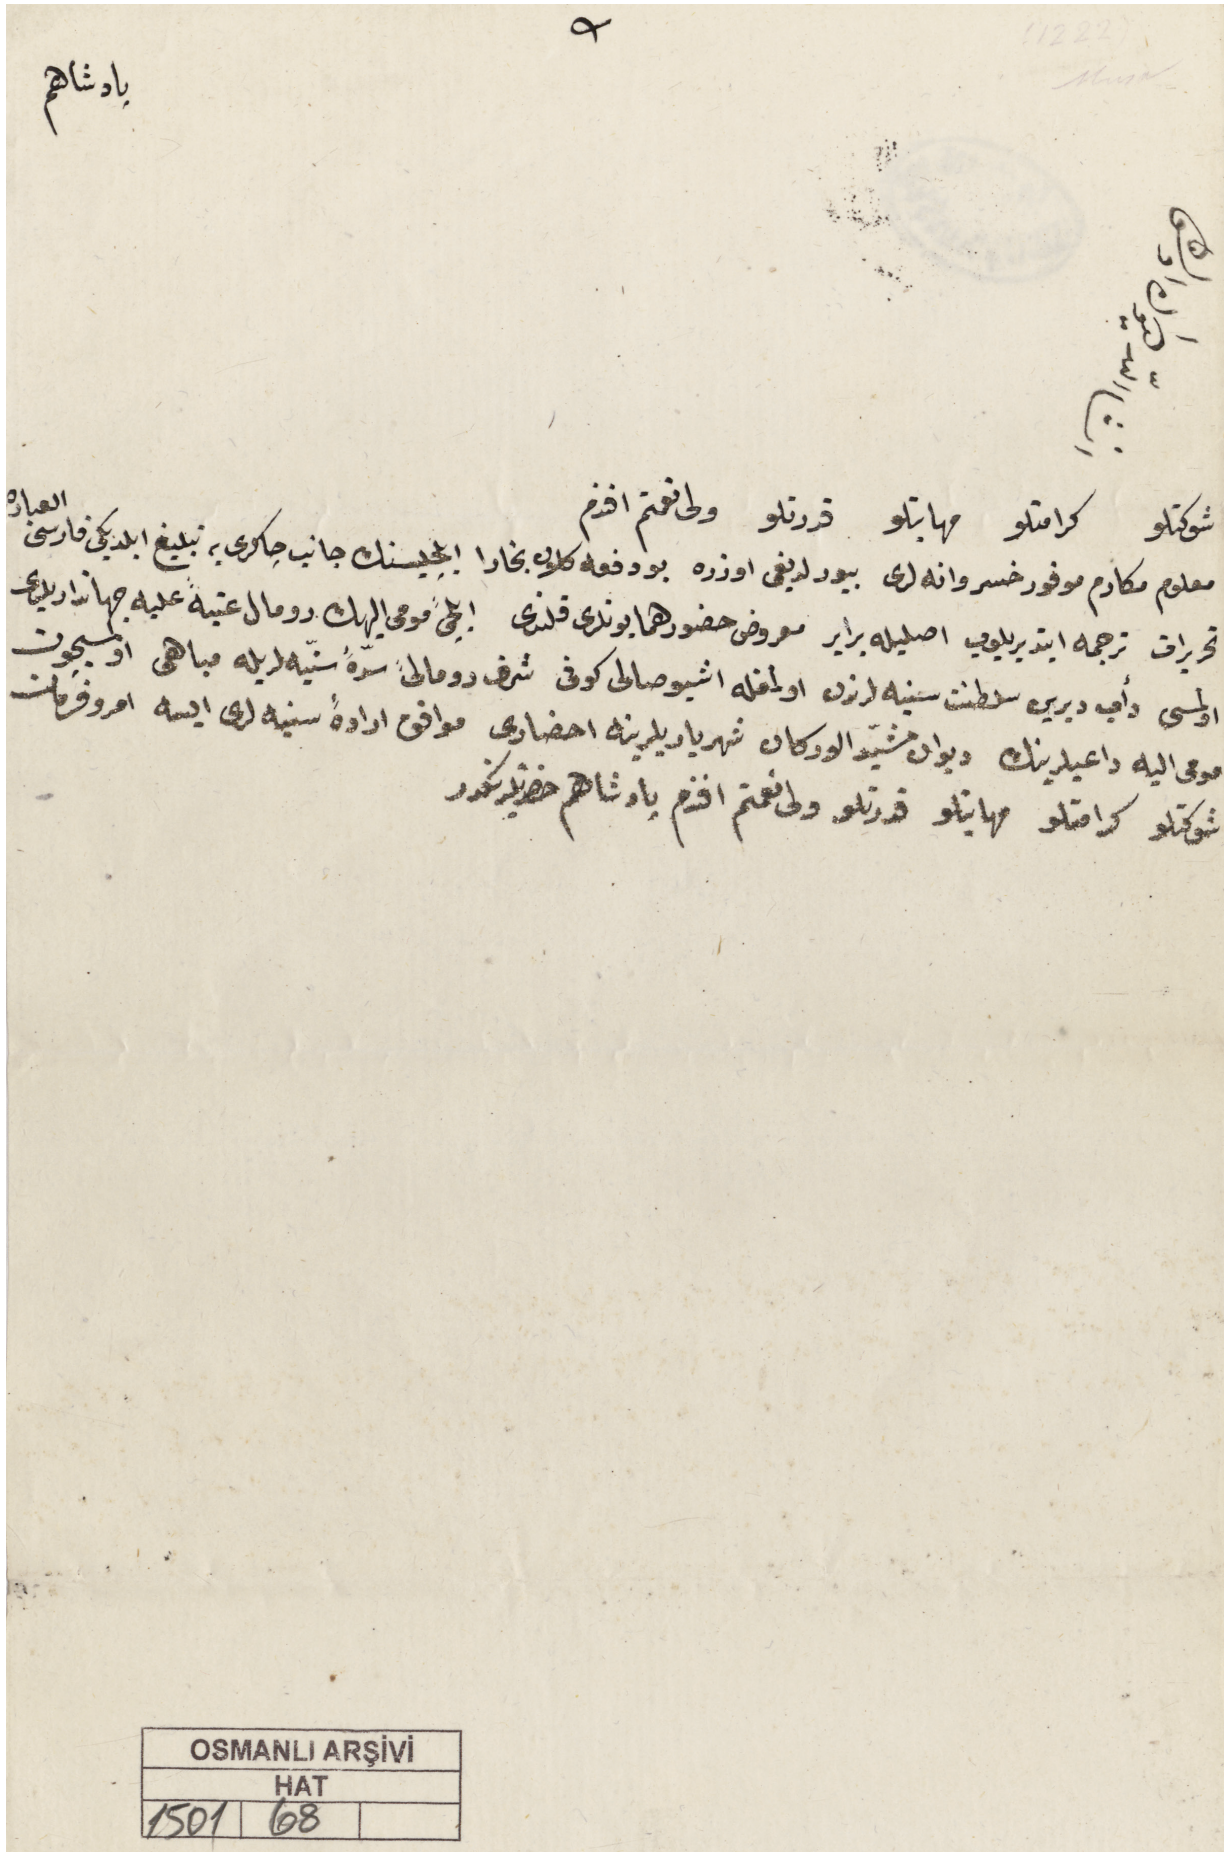 پادشاهم
ان شاء الله
شوكتلو كرامتلو مهابتلو قدرتلو ولی نعمتم افندم
معلوم مكارم موفور خسروانه لری بیورلدیغی اوزره بو دفعه كلان بخارا ایلچیسنك جانب چاكری یه تبلیغ ایلدیكی فارسی العباره
تحریرات ترجمه ایتدیریلوب اصلیله برابر معروض حضور همایونلری قلندی ایلچئ مومی الیهك رومال عتبهٔ علیه جهاندارلری
اولمسی دأب دیرین سلطنت سنیه لرندن اولمغله اشبو صالی كونی شرف رومالئ سدّهٔ سنیّه لریله مباهی اولمسیچون
مومی الیه داعیلرینك دیوان مشیّد الاركان شهریاریلرینه احضاری موافق ارادهٔ سنیه لری ایسه امر و فرمان
شوكتلو كرامتلو مهابتلو قدرتلو ولی نعمتم افندم پادشاهم حضرتلرینكدر
OSMANLI ARŞİVİ
HAT
1501 68